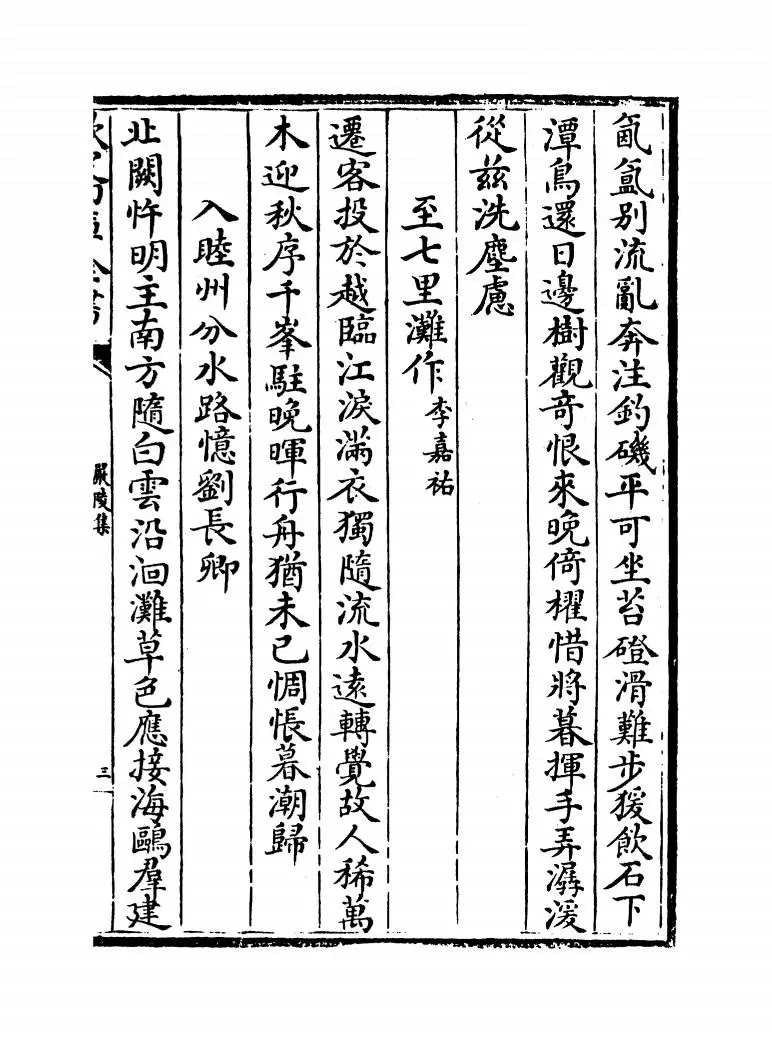 氤氳別流亂奔注釣磯平可坐苔磴滑難步猨飲石下
潭鳥還日邊樹觀奇恨來晚倚櫂惜將暮揮手弄潺湲
從兹洗塵慮
至七里灘作李嘉祐
遷客投於越臨江淚滿衣獨隨流水逺轉覺故人稀萬
木迎秋序千峯駐晚暉行舟猶未已惆悵暮潮歸
入睦州分水路憶劉長卿
北闕忤明主南方隨白雲沿洄灘草色應接海鷗羣建
嚴陵集
三